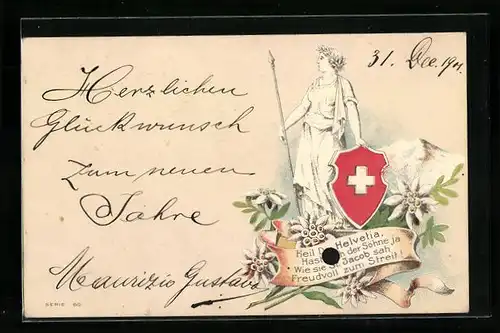 31. Dec. 1901.
Herzlichen
Glückwunsch
zum neuen
Jahre
Maurizio Gustavo
Helvetia,
Heil Dir
Hast der Söhne ja
Wie sie St. Jacob sah,
Freudvoll zum Streit!
SERIE 60